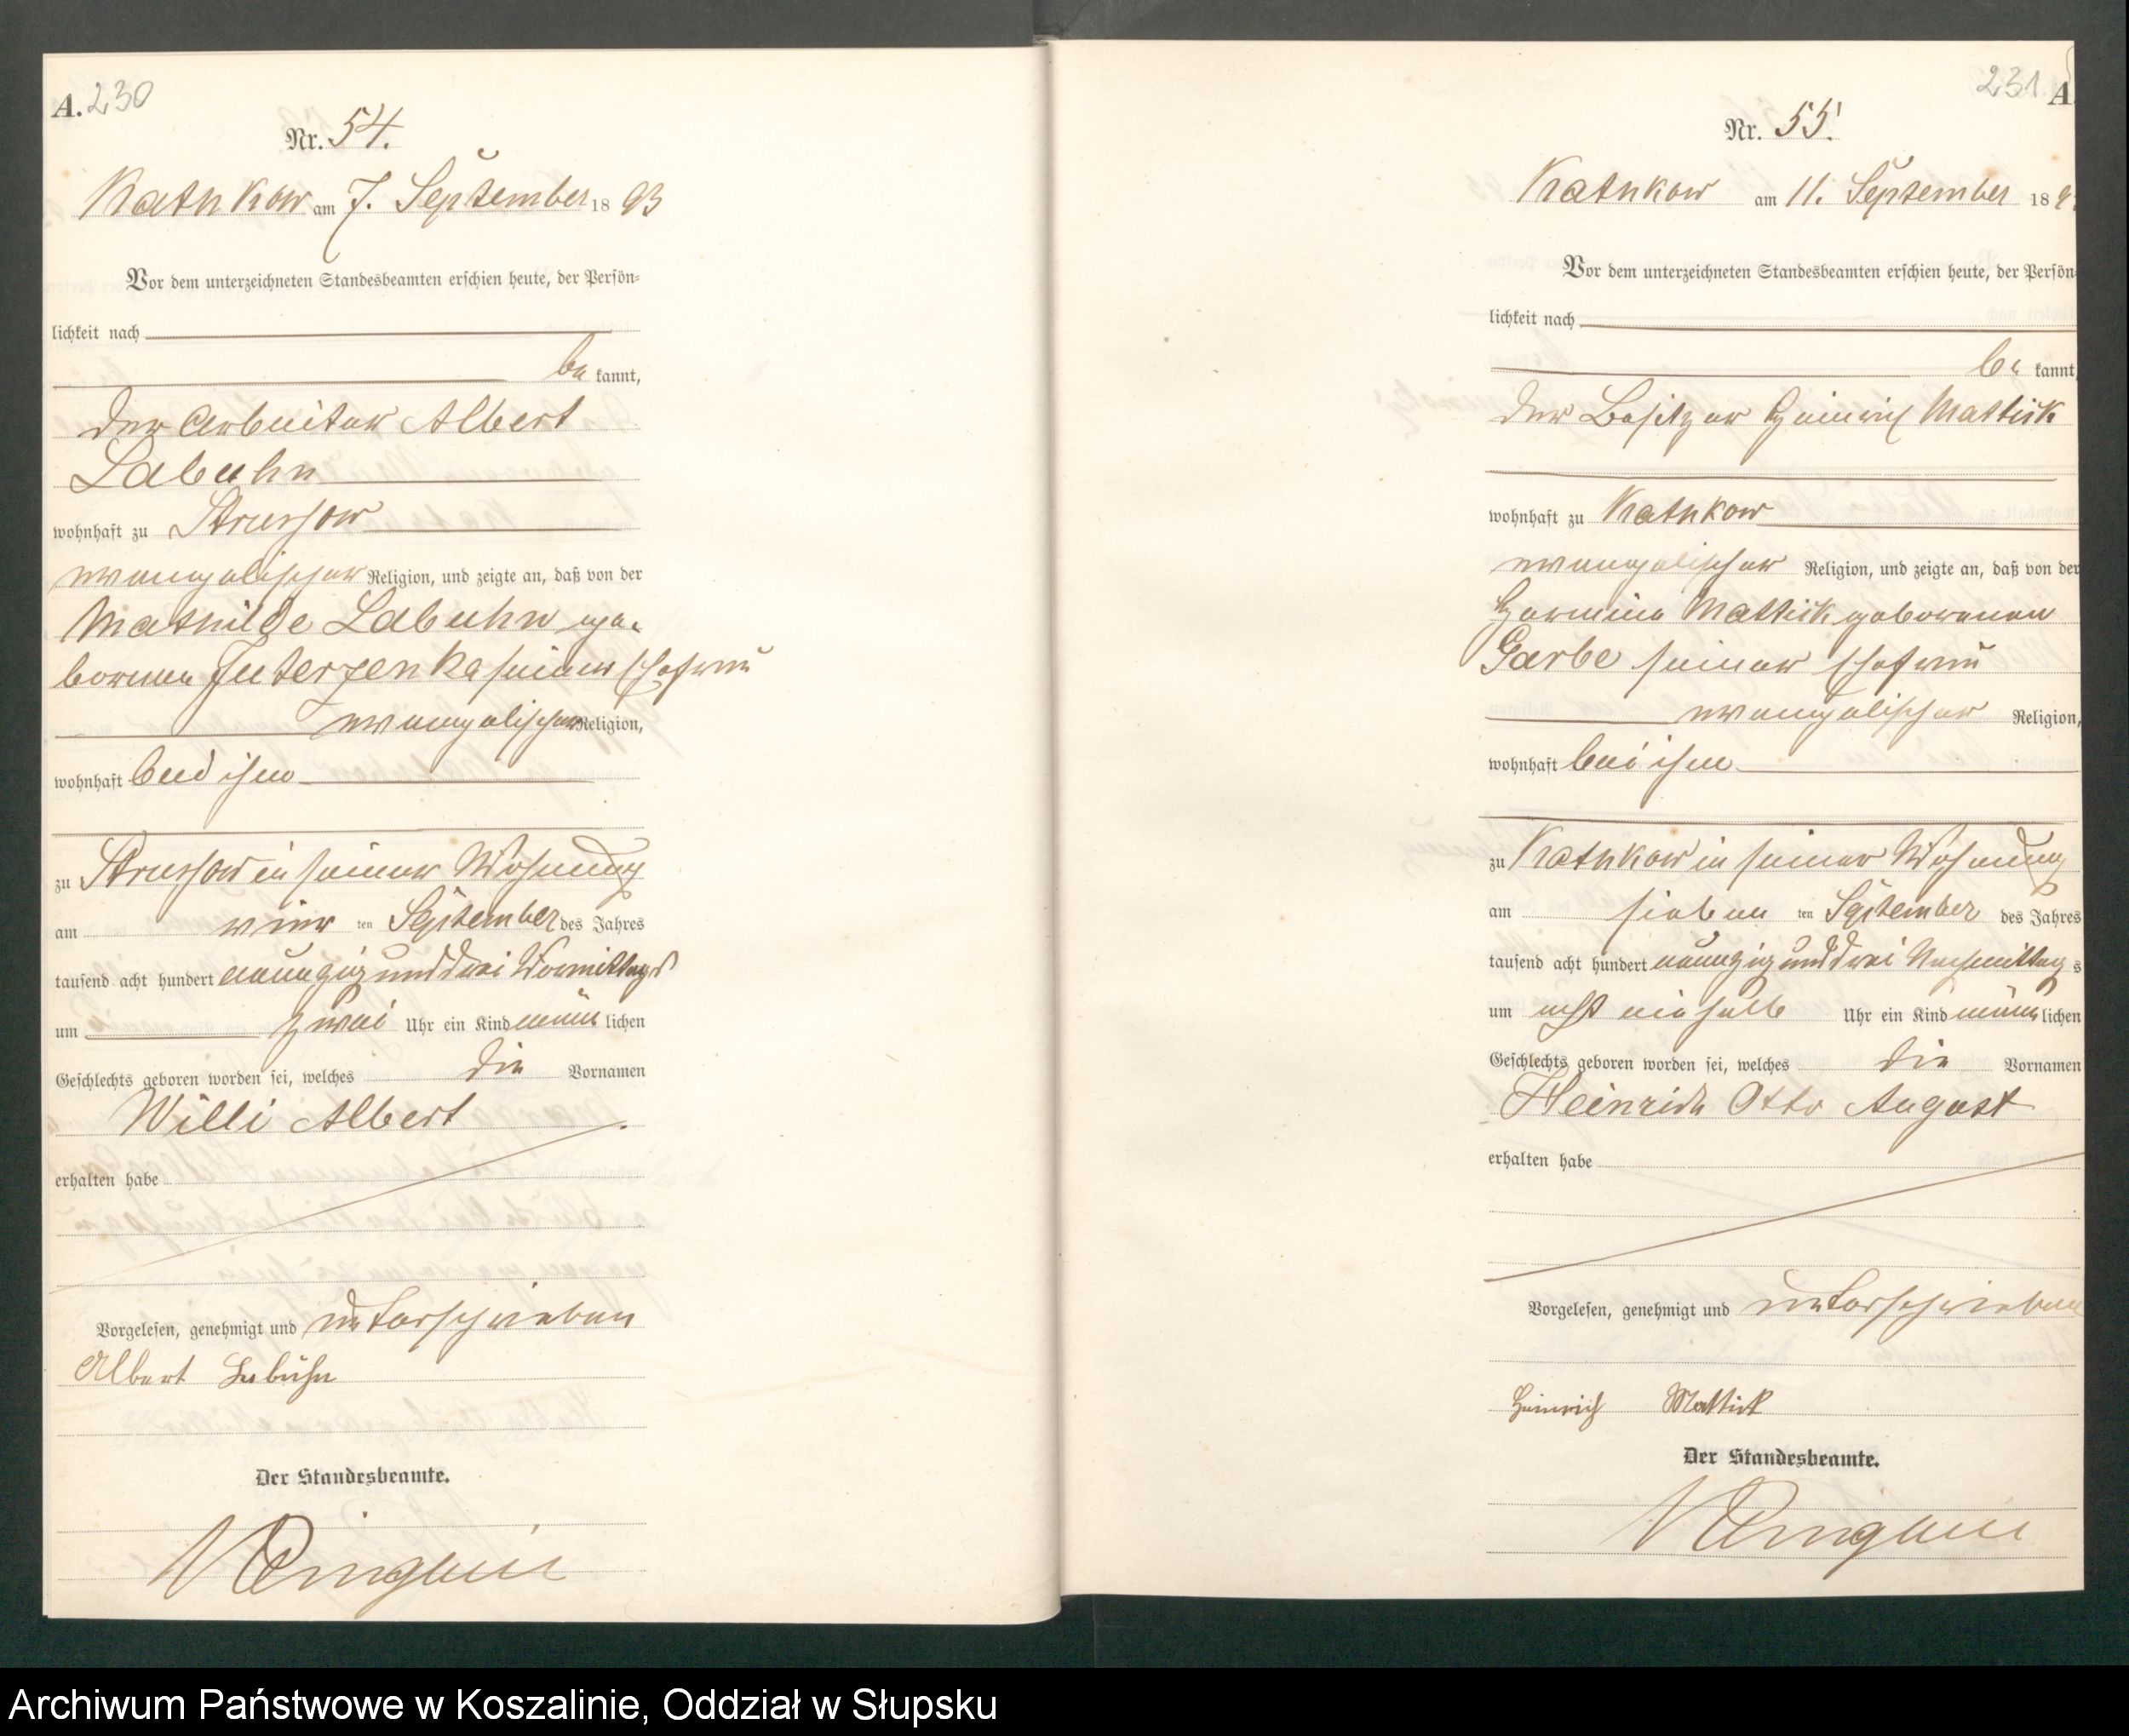 A. 230
Nr. 54.
Kathkow am 7. September 1893
Vor dem unterzeichneten Standesbeamten erschien heute, der Persön-
lichkeit nach
bekannt,
der Arbeiter Albert
Labuhn
wohnhaft zu Strussow
evangelischer Religion, und zeigte an, daß von der
Mathilde Labuhn ge-
borenen Juterzenka seiner Ehefrau
evangelischer Religion,
wohnhaft bei ihm
zu Strussow in seiner Wohnung
am vier ten September des Jahres
tausend acht hundert neunzig und drei Vormittags
um zwei Uhr ein Kind männlichen
Geschlechts geboren worden sei, welches die Vornamen
Willi Albert
erhalten habe
Vorgelesen, genehmigt und unterschrieben
Albert Labuhn
Der Standesbeamte.
231. A.
Nr. 55.
Kathkow am 11. September 189
Vor dem unterzeichneten Standesbeamten erschien heute, der Persön-
lichkeit nach
bekannt,
der Besitzer Heinrich Mattick
wohnhaft zu Kathkow
evangelischer Religion, und zeigte an, daß von der
Hermine Mattick geborenen
Garbe seiner Ehefrau
evangelischer Religion,
wohnhaft bei ihm
zu Kathkow in seiner Wohnung
am sieben ten September des Jahres
tausend acht hundert neunzig und drei Nachmittags
um acht ein halb Uhr ein Kind männlichen
Geschlechts geboren worden sei, welches die Vornamen
Heinrich Otto August
erhalten habe
Vorgelesen, genehmigt und unterschrieben
Heinrich Mattick
Der Standesbeamte.
Archiwum Państwowe w Koszalinie, Oddział w Słupsku